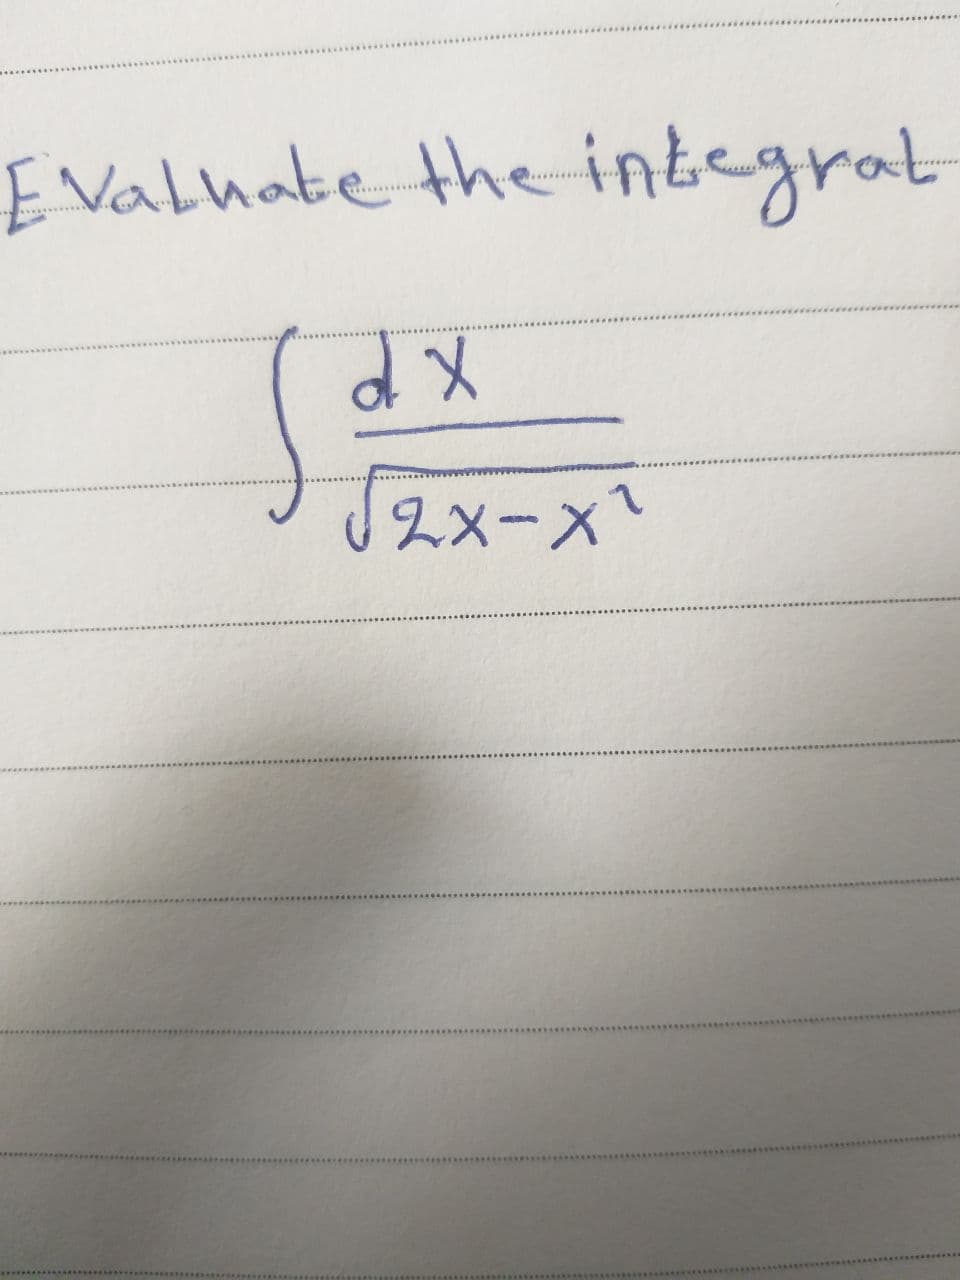 Evaluate the integral
∫ dx / √(2x-x²)